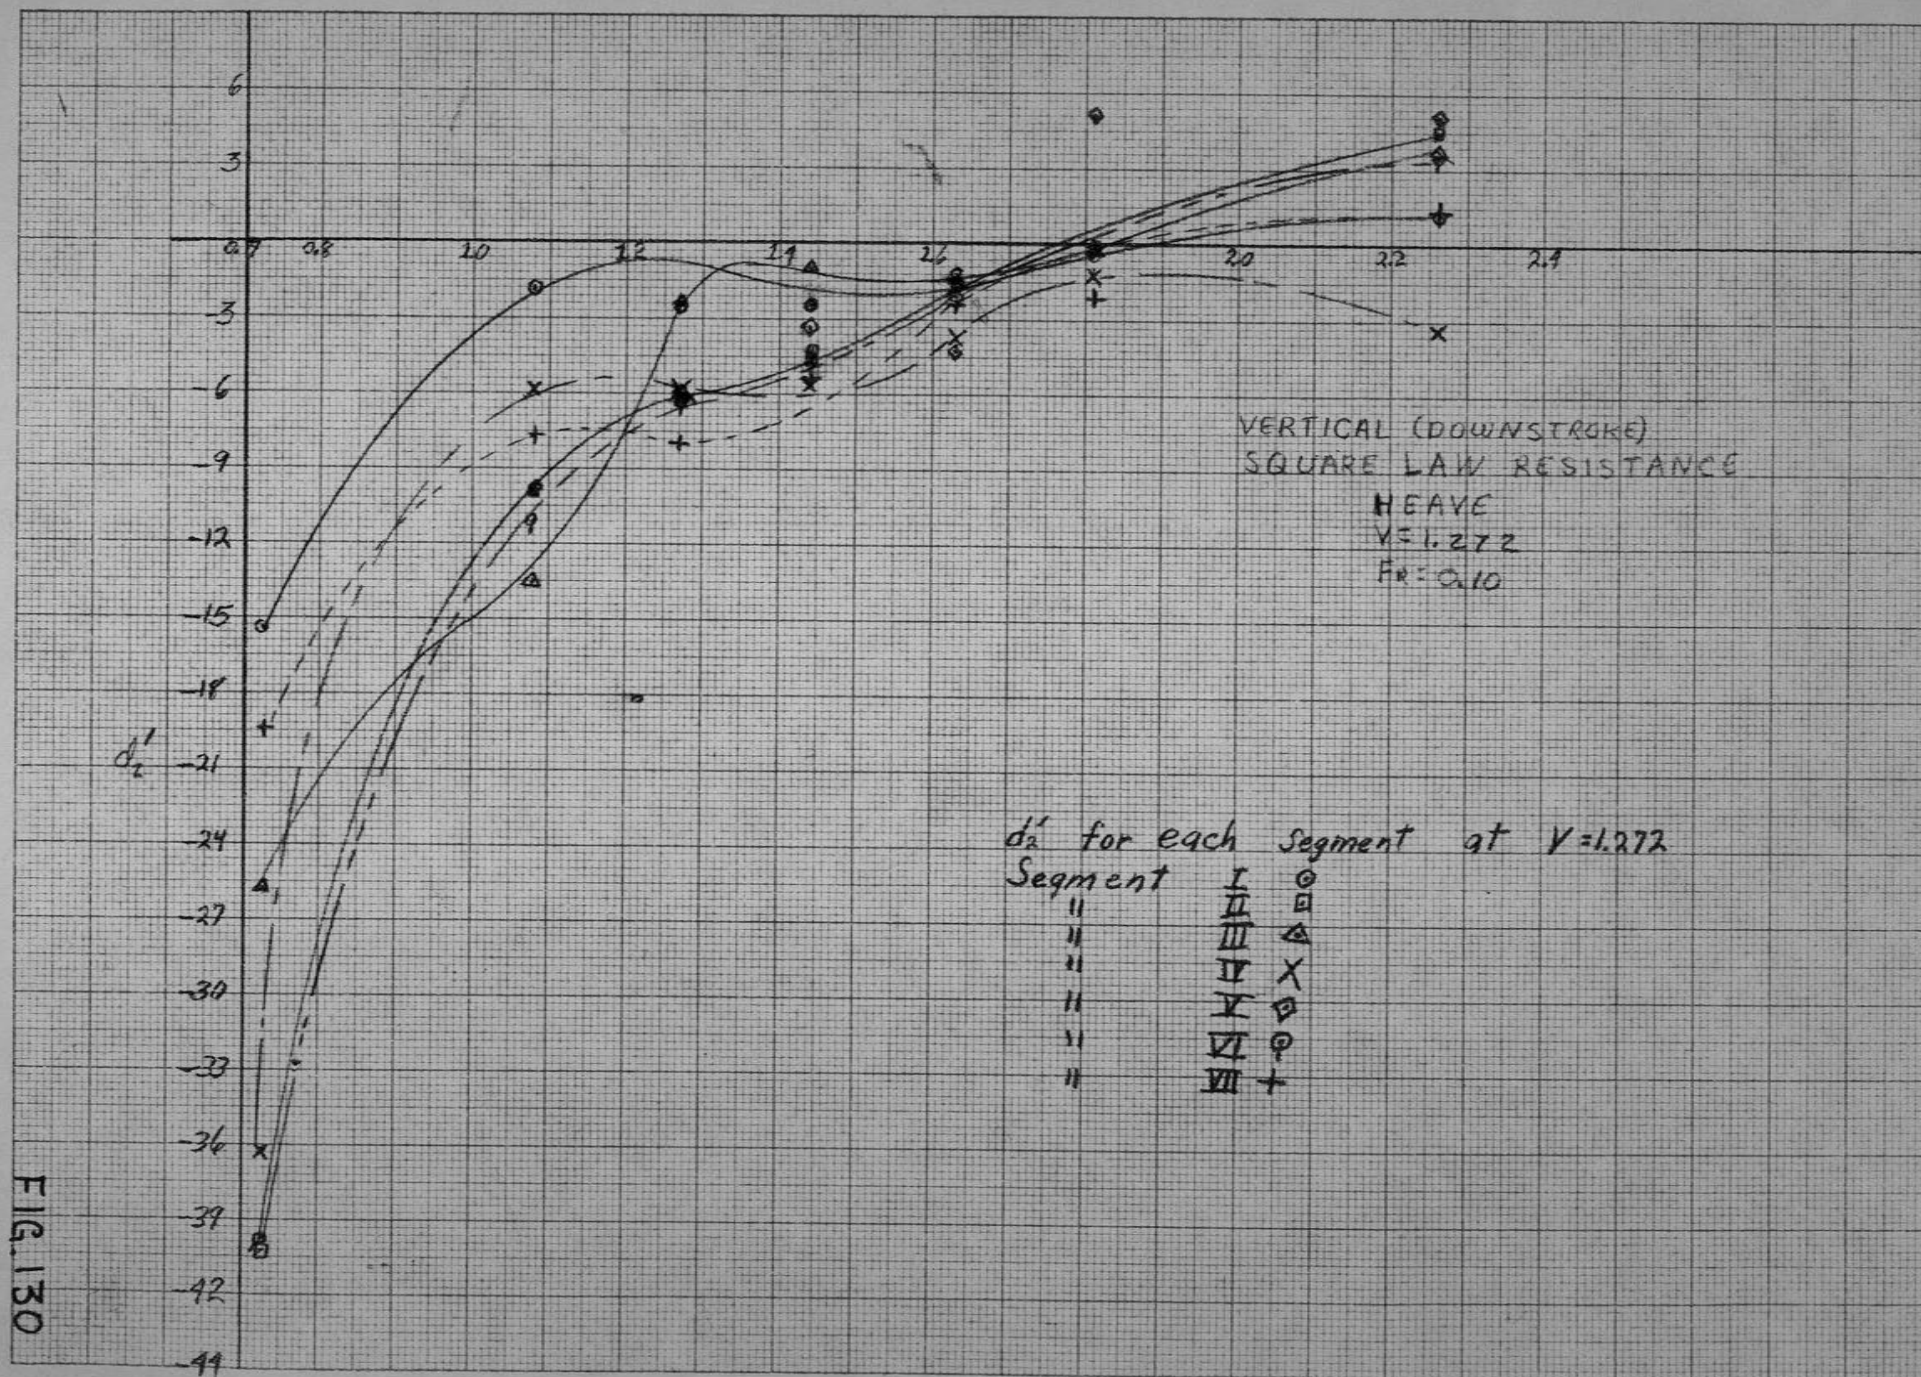 6
3
0.7 0.8 1.0 1.2 1.4 1.6 2.0 2.2 2.4
-3
-6
-9
-12
-15
-18
d₂' -21
-24
-27
-30
-33
-36
-39
-42
-44
VERTICAL (DOWNSTROKE)
SQUARE LAW RESISTANCE
HEAVE
V=1.272
FR=0.10
d₂' for each segment at V=1.272
Segment I
" II
" III
" IV X
" V
" VI
" VII +
FIG. 130